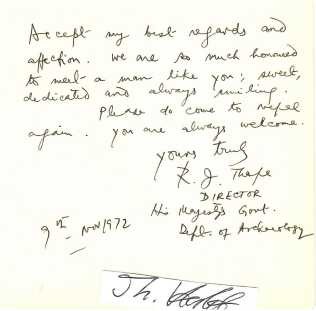 Accept my best regards and
affection. We are so much honoured
to meet a man like you; sweet,
dedicated and always smiling.
Please do come to Nepal
again. You are always welcome.
yours truly
R. J. Thapa
DIRECTOR
His Majesty's Govt.
9th Nov 1972
Dept. of Archaeology
Th.